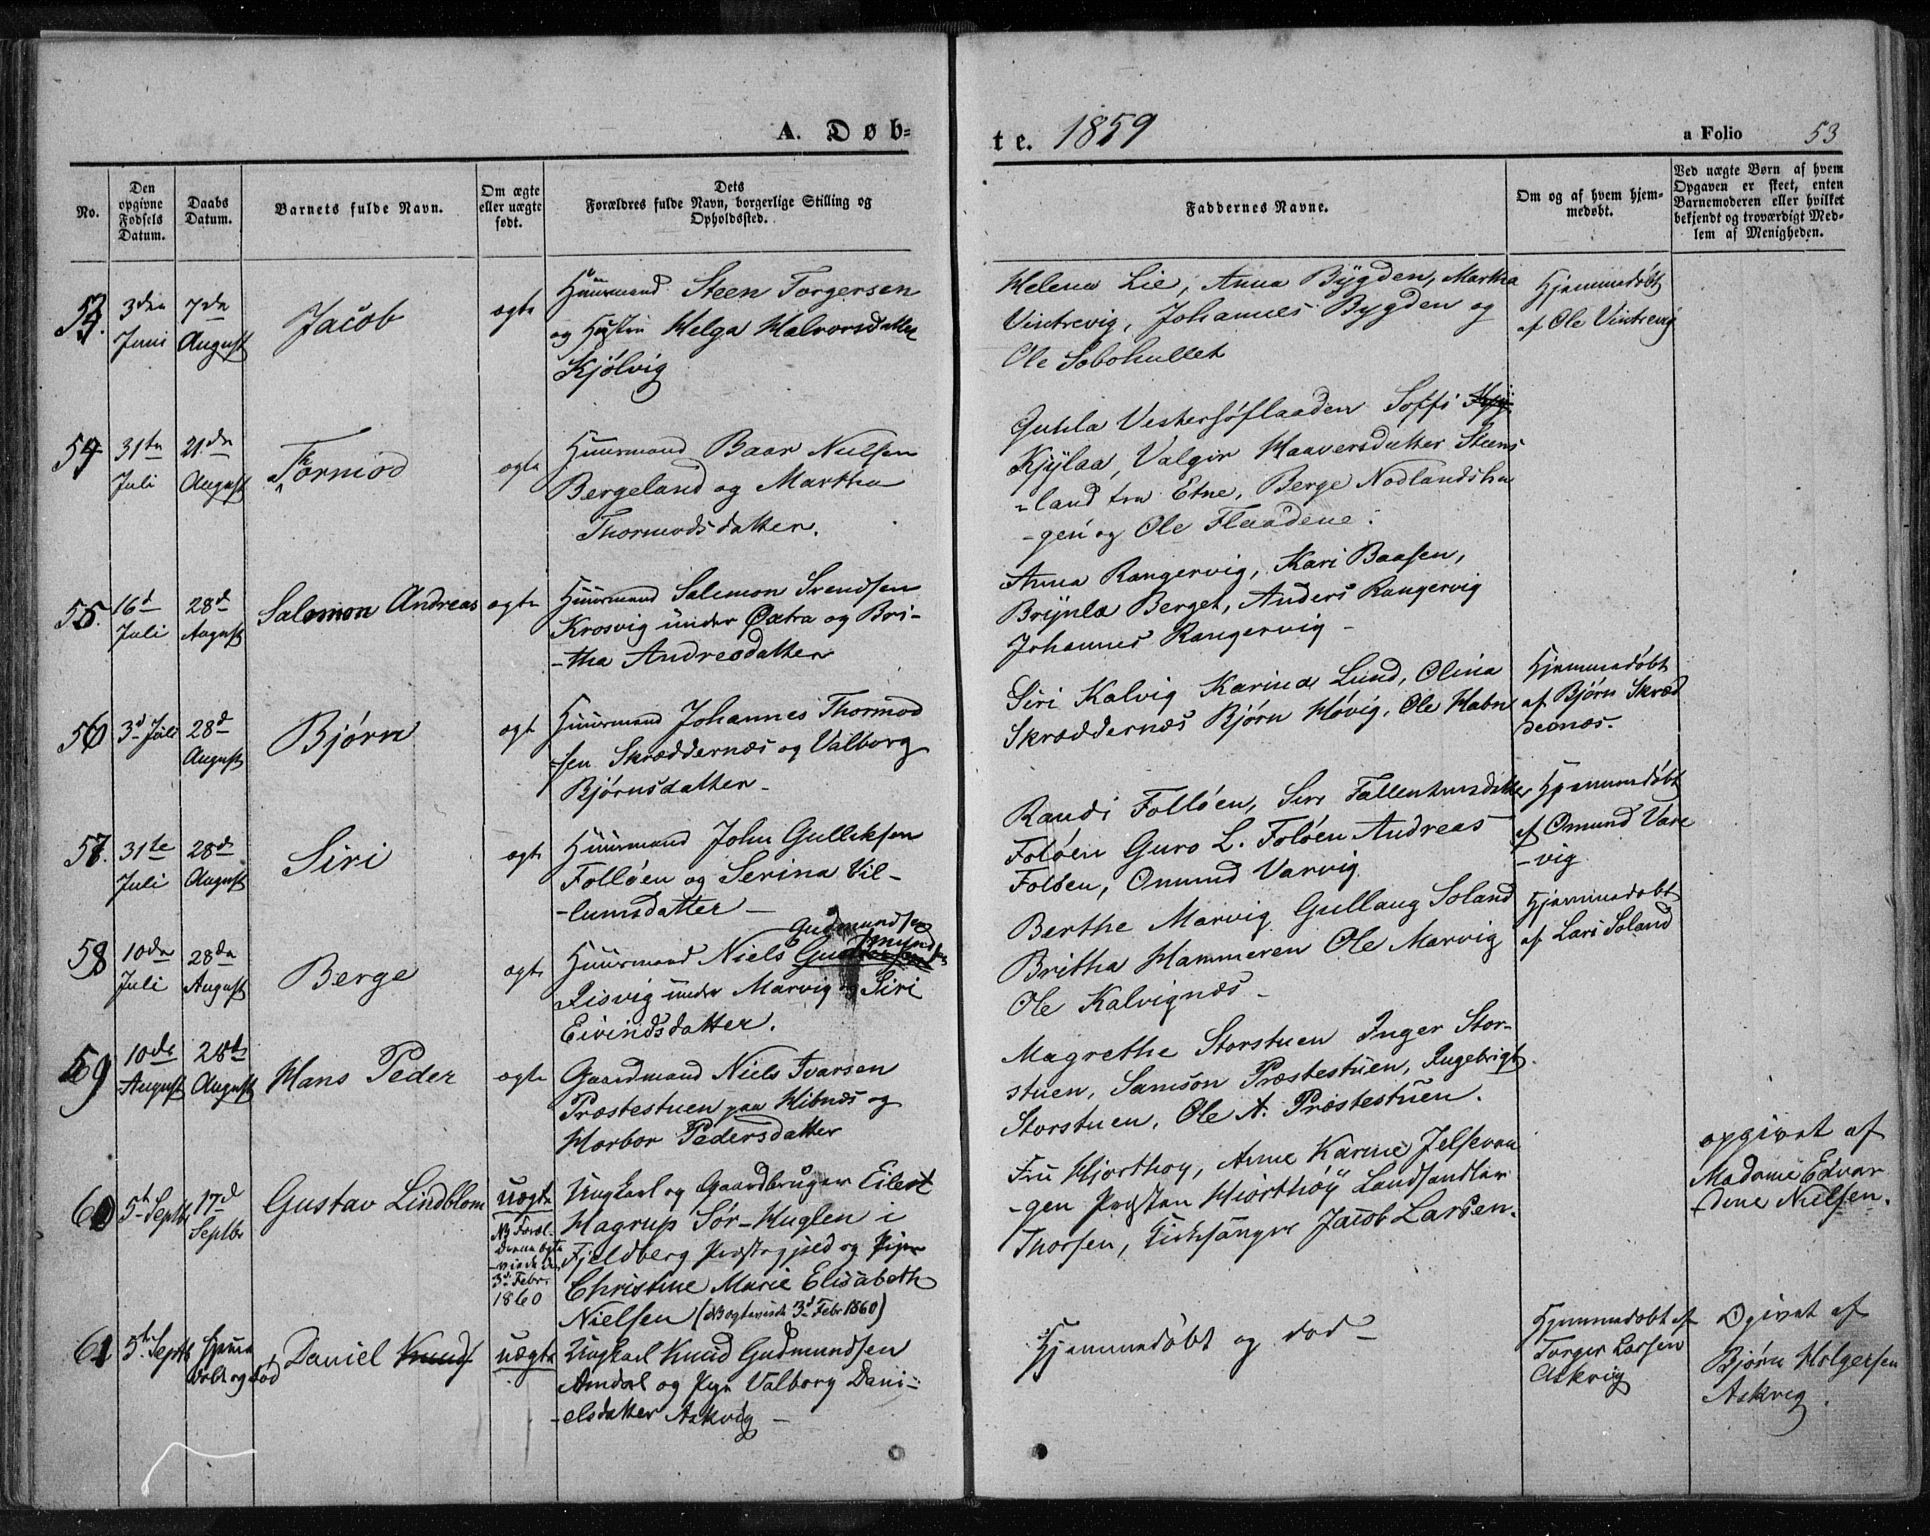 A. Døb-
te. 1859
a Folio 53
No.
Den opgivne Fødsels Datum.
Daabs Datum.
Barnets fulde Navn.
Om ægte eller uægte født.
Dets
Forældres fulde Navn, borgerlige Stilling og
Opholdssted.
Faddernes Navne.
Om og af hvem hjem-
medøbt.
Ved uægte Børn af hvem
Opgaven er skeet, enten
Barnemoderen eller hvilket
bekjendt og troværdigt Med-
lem af Menigheden.
53.
3den Juni
7da August
Jacob
ogte
Huusmand Steen Torgersen
og Hustru Helga Halvorsdatter
Kjölvig
Helena Lie, Anna Bÿgden, Martha
Vintrevig, Johannes Bygden og
Ole Sobohullet
Hjemmedöbt
af Ole Vintrevig
54
31te Juli
21de August
Thormod
ogte
Huusmand Baar Nielsen
Bergeland og Martha
Thormodsdatter.
Gunla Vestersöflaaden Soffi
Kjÿlaa, Valgir Haaversdatter Steens
-land fra Etne, Berge Nodlandsha
-gen og Ole Flaadene.
55.
16d Juli
28d August
Salomon Andreas
ogte
Huusmand Salemon Svendsen
Krosvig under Øxtra og Bri-
-tha Andreasdatter
Anna Rangervig, Kari Baasen,
Brÿnla Berget, Anders Rangervig
Johannes Rangervig -
56
3d Juli
28d August
Bjørn
ogte
Huusmand Johannes Thormod
-sen Skræddernæs og Valborg
Bjørnsdatter -
Siri Kalvig Karina Lund, Olina
Skræddernæs Bjørn Høvig, Ole Habn
Hjemmedöbt
af Bjørn Skræd
dernæs.
57.
31te Juli
28de August
Siri
ogte
Huusmand John Gulliksen
Follöen og Serina Vil-
-lumsdatter -
Randi Follöen, Siri Fallentinsdatter
Folöen Guro L. Folöen Andreas
Folöen, Omund Varvig
Hjemmedöbt
af Omund Vare
-vig
58
10de Juli
28de August
Berge
ogte
Gudmundsen
Huusmand Niels
Risvig under Marvig og Siri
Eivindsdatter.
Berthe Marvig Gullaug Soland
Britha Hammeren Ole Marvig
Ole Kalvignæs -
Hjemmedöbt
af Lars Soland
59
10de August
28de August
Hans Peder
ogte
Gaardmand Niels Ivarsen
Præstestuen paa Hibnæs og
Horbor Pedersdatter
Magrethe Storstuen Inger Stor-
stuen, Samson Præstestuen, Ingebrigt
Storstuen, Ole A. Præstestuen.
60
5t Septb
17d Septbr
Gustav Lindblom
uægte
NB Foræl-
drene ægte
-viede den
3d Febr.
1860
Ungkarl og Gaardbruger Eilert
Hagrup Sör-Huglen i
Fjeldberg Præstegjeld og Pigen
Christine Marie Elisabeth
Nielsen (NB ægteviede 3d Febr 1860)
Fru Hjorthoy, Anne Karine Jelsevaa
-gen Presten Hiorthöÿ Landhandler
Thorsen, Kirkesanger Jacob Larsen.
opgivet af
Madame Edvar
dine Nielsen.
61
5te Septb
Hjemme
døbt og død
Daniel Knuds
uægte
Ungkarl Knud Gudmundsen
Amdal og Pige Valborg Dani-
-elsdatter Askvig -
Hjemmedöbt og död -
Hjemmedobt af
Torger Larsen
Askvig
Ogivet af
Bjørn Holgersen
Askvig.